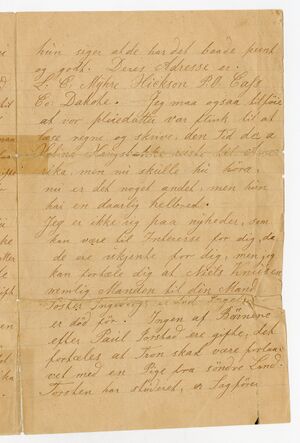 hun siger alde har det baade pent
og godt. Deres Adresse er.
L. C. Myhre Hickson P.O. Cass
Co. Dakota. Jeg maa ogsaa tilføie
at vor pleiedatter var flink til at
læse regne og skrive, den tid de
reiste til Ame
rika, men ni skulle hu høra,
nu er det noget andet, men hun
har en daarlig helbred.
Jeg er ikke rig paa nyheder, som
kan være til Interesse for dig, da
de ere ukjente for dig, men jeg
kan fortæle dig at Niels
nemlig Manden til din Mand
Søster Ingeborg er død
er død før. Ingen af Børnene
efter Paul Forstad ere gifte, det
fortæles at Iron skal være forlo
vet med en Pige fra söndre Land.
Torsten har studeret, er Sagfører